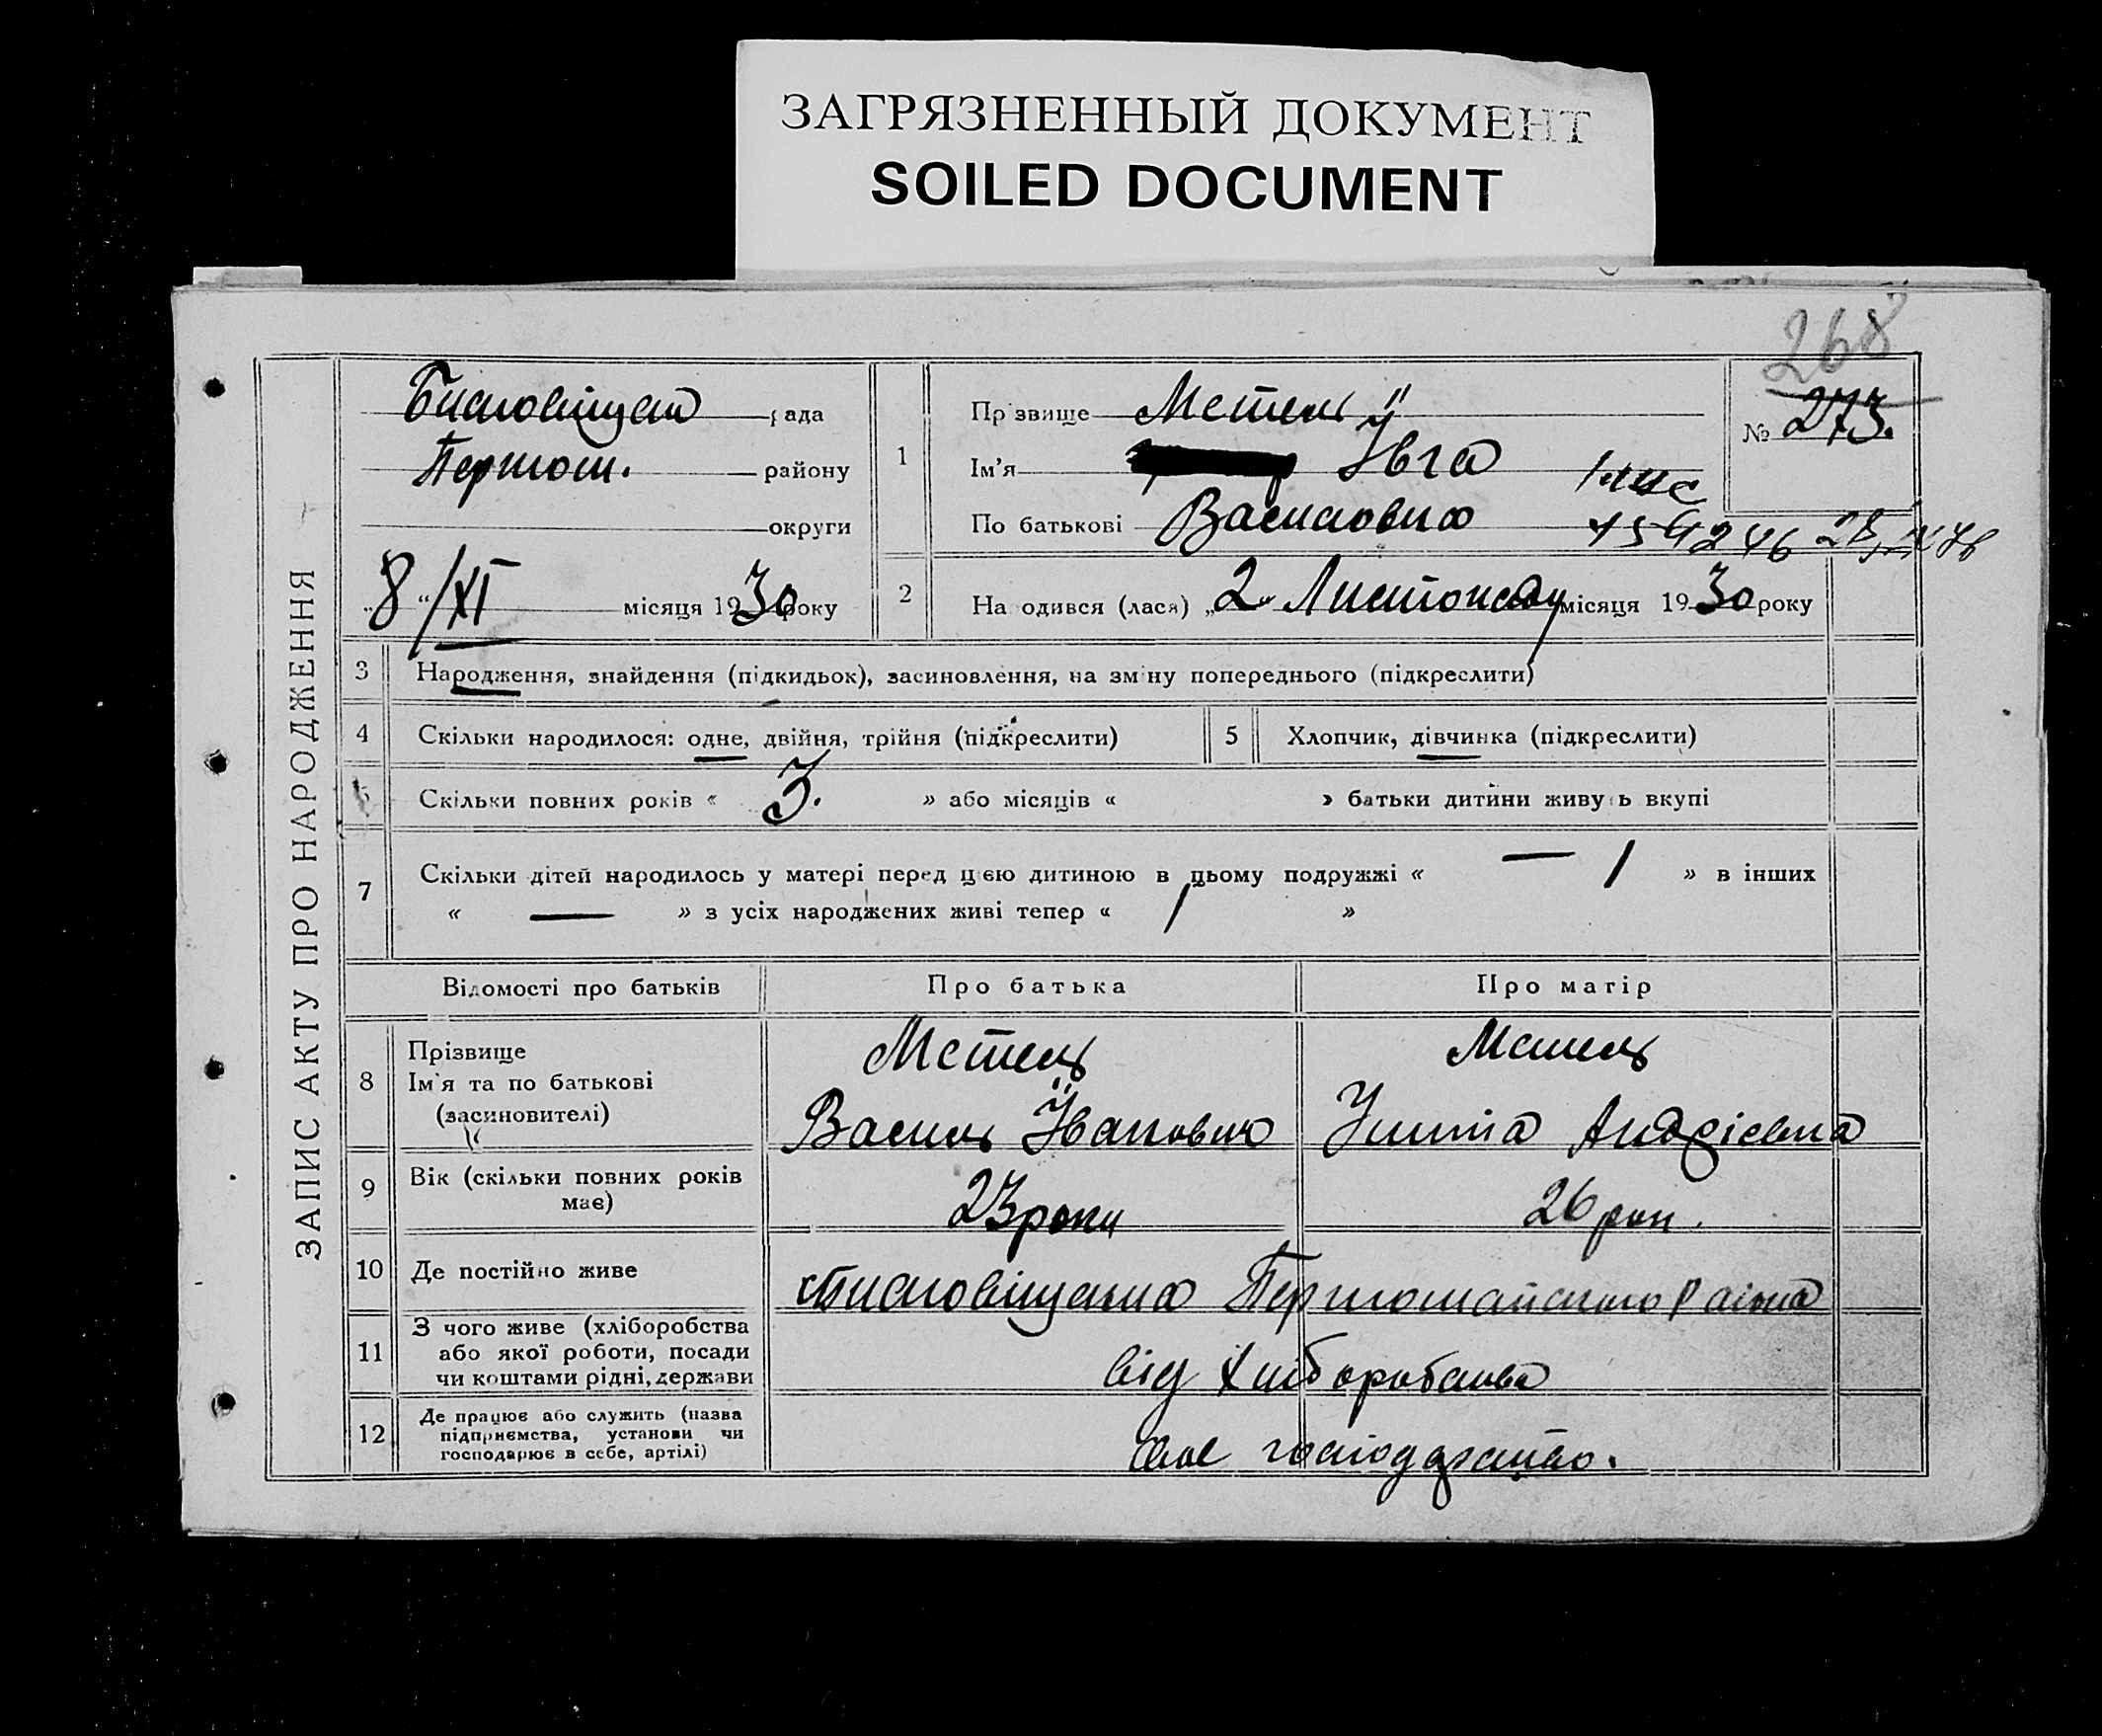 ЗАГРЯЗНЕННЫЙ ДОКУМЕНТ
SOILED DOCUMENT
268
ЗАПИС АКТУ ПРО НАРОДЖЕННЯ
рада
Першом. району
округи
„8“/XI місяця 1930 року
1
Прізвище Метель
Ім'я Ївга
По батькові Василовна
№ 273.
154246
2
Народився (лася) „2“ Листопаду місяця 1930 року
3 Народження, знайдення (підкидьок), засиновлення, на зміну попереднього (підкреслити)
4 Скільки народилося: одне, двійня, трійня (підкреслити)
5 Хлопчик, дівчинка (підкреслити)
6 Скільки повних років « 3. » або місяців « » батьки дитини живуть вкупі
7 Скільки дітей народилось у матері перед цією дитиною в цьому подружжі « — 1 » в інших
« — » з усіх народжених живі тепер « 1 »
Відомості про батьків Про батька Про матір
8 Прізвище
Ім'я та по батькові
(засиновителі)
Метель
Василь Їванович
Метель
Андрієвна
9 Вік (скільки повних років
має)
23 роки
26 рок.
10 Де постійно живе
Першомайського Раіона
11 З чого живе (хліборобства
або якої роботи, посади
чи коштами рідні, держави
від Хліборобства
12 Де працює або служить (назва
підприємства, установи чи
господарює в себе, артілі)
своє господарство.